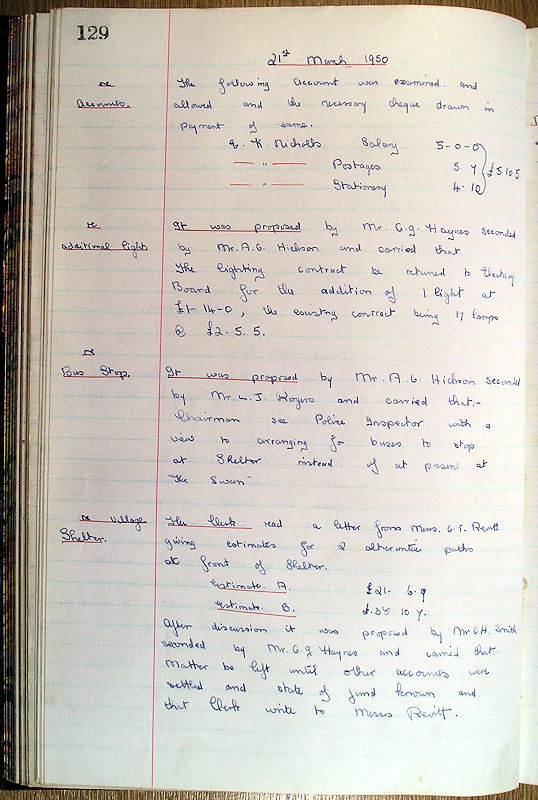 129
21st March 1950
re
Accounts.
The following Account was examined and
allowed and the necessary cheque drawn in
payment of same.
E. K. Nicholls Salary 5-0-0
— " — Postages 5. 7
— " — Stationery 4. 10
£5.10.5
re
additional lights
It was proposed by Mr. C.G. Haynes seconded
by Mr. A.G. Hickson and carried that
The lighting contract be returned to Electricity
Board for the addition of 1 light at
£1-14-0, the existing contract being 17 lamps
@ £2. 5. 5.
re
Bus Stop.
It was proposed by Mr. A.G. Hickson seconded
by Mr. L. J. Rogers and carried that:-
Chairman see Police Inspector with a
view to arranging for buses to stop
at Shelter instead of at present at
"The Swan"
re Village
Shelter.
The Clerk read a letter from Messrs. Revitt
giving estimates for 2 alternative paths
at front of Shelter.
Estimate A. £21. 6. 9
Estimate B. £38 10 7.
After discussion it was proposed by Mr C.H. Smith
seconded by Mr. C.G Haynes and carried that
Matter be left until other accounts were
settled and state of fund known and
that Clerk write to Messrs Revitt.